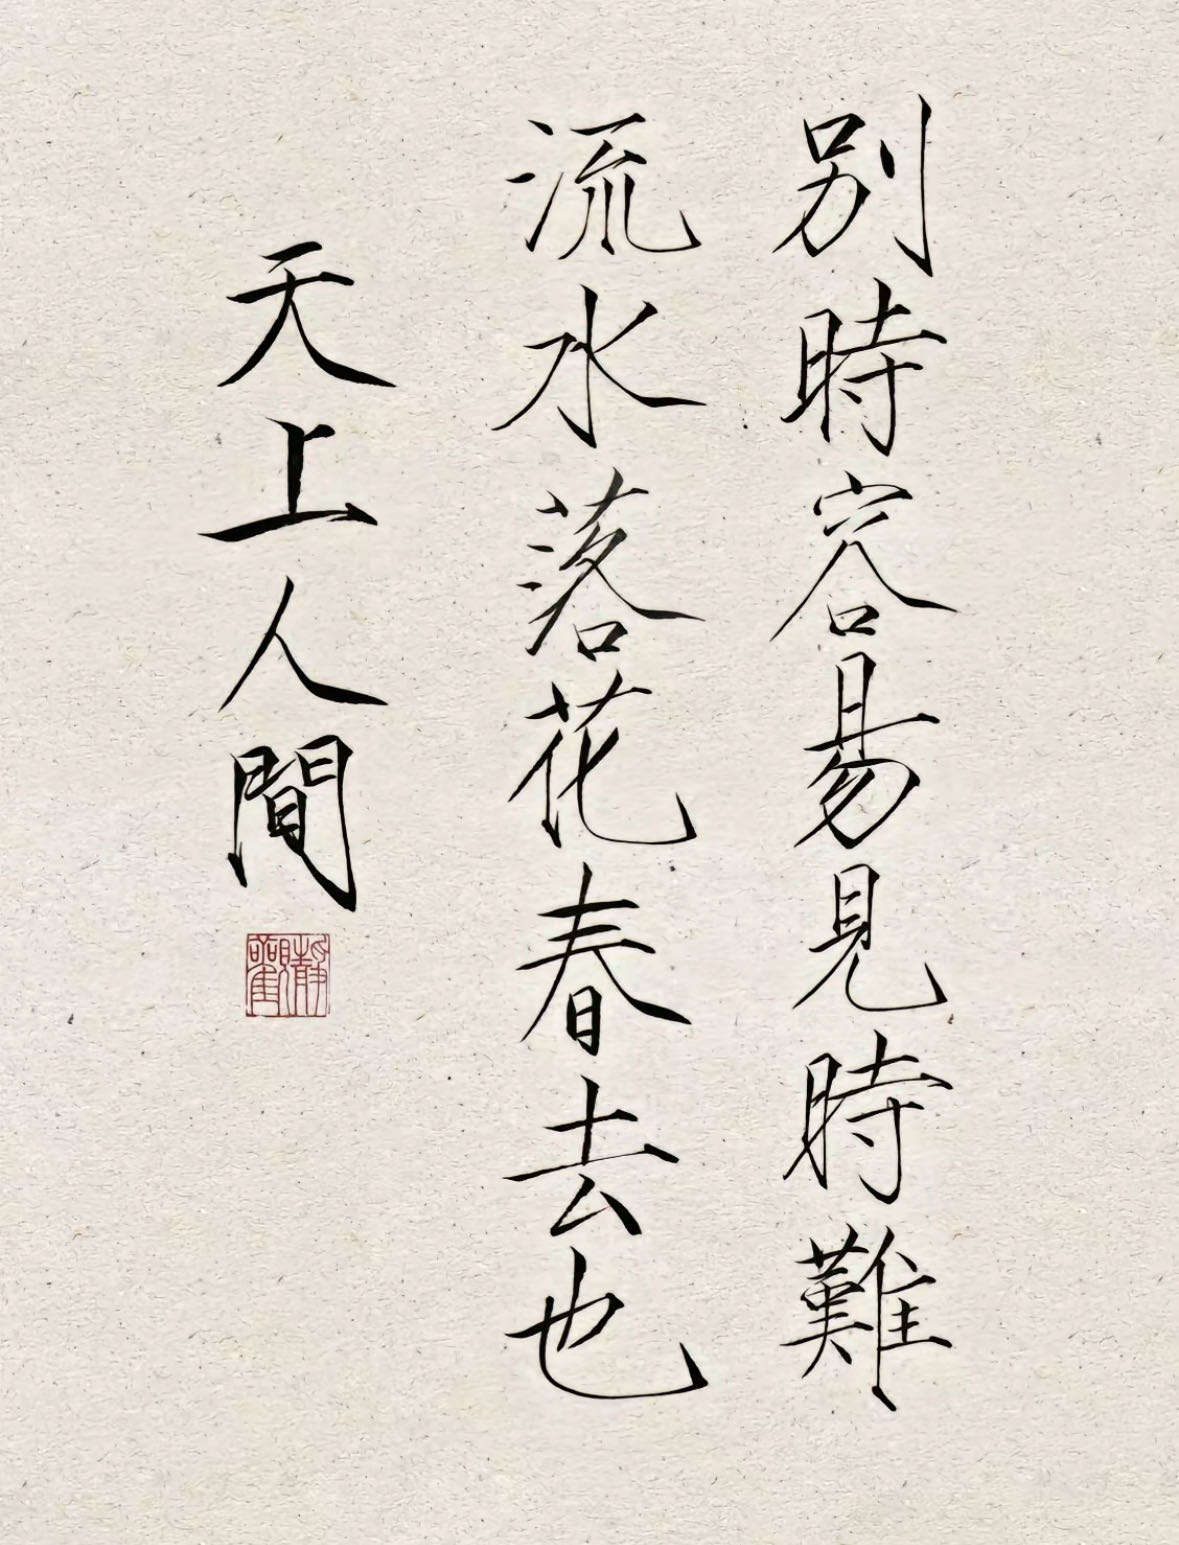 別時容易見時難
流水落花春去也
天上人間
靜觀